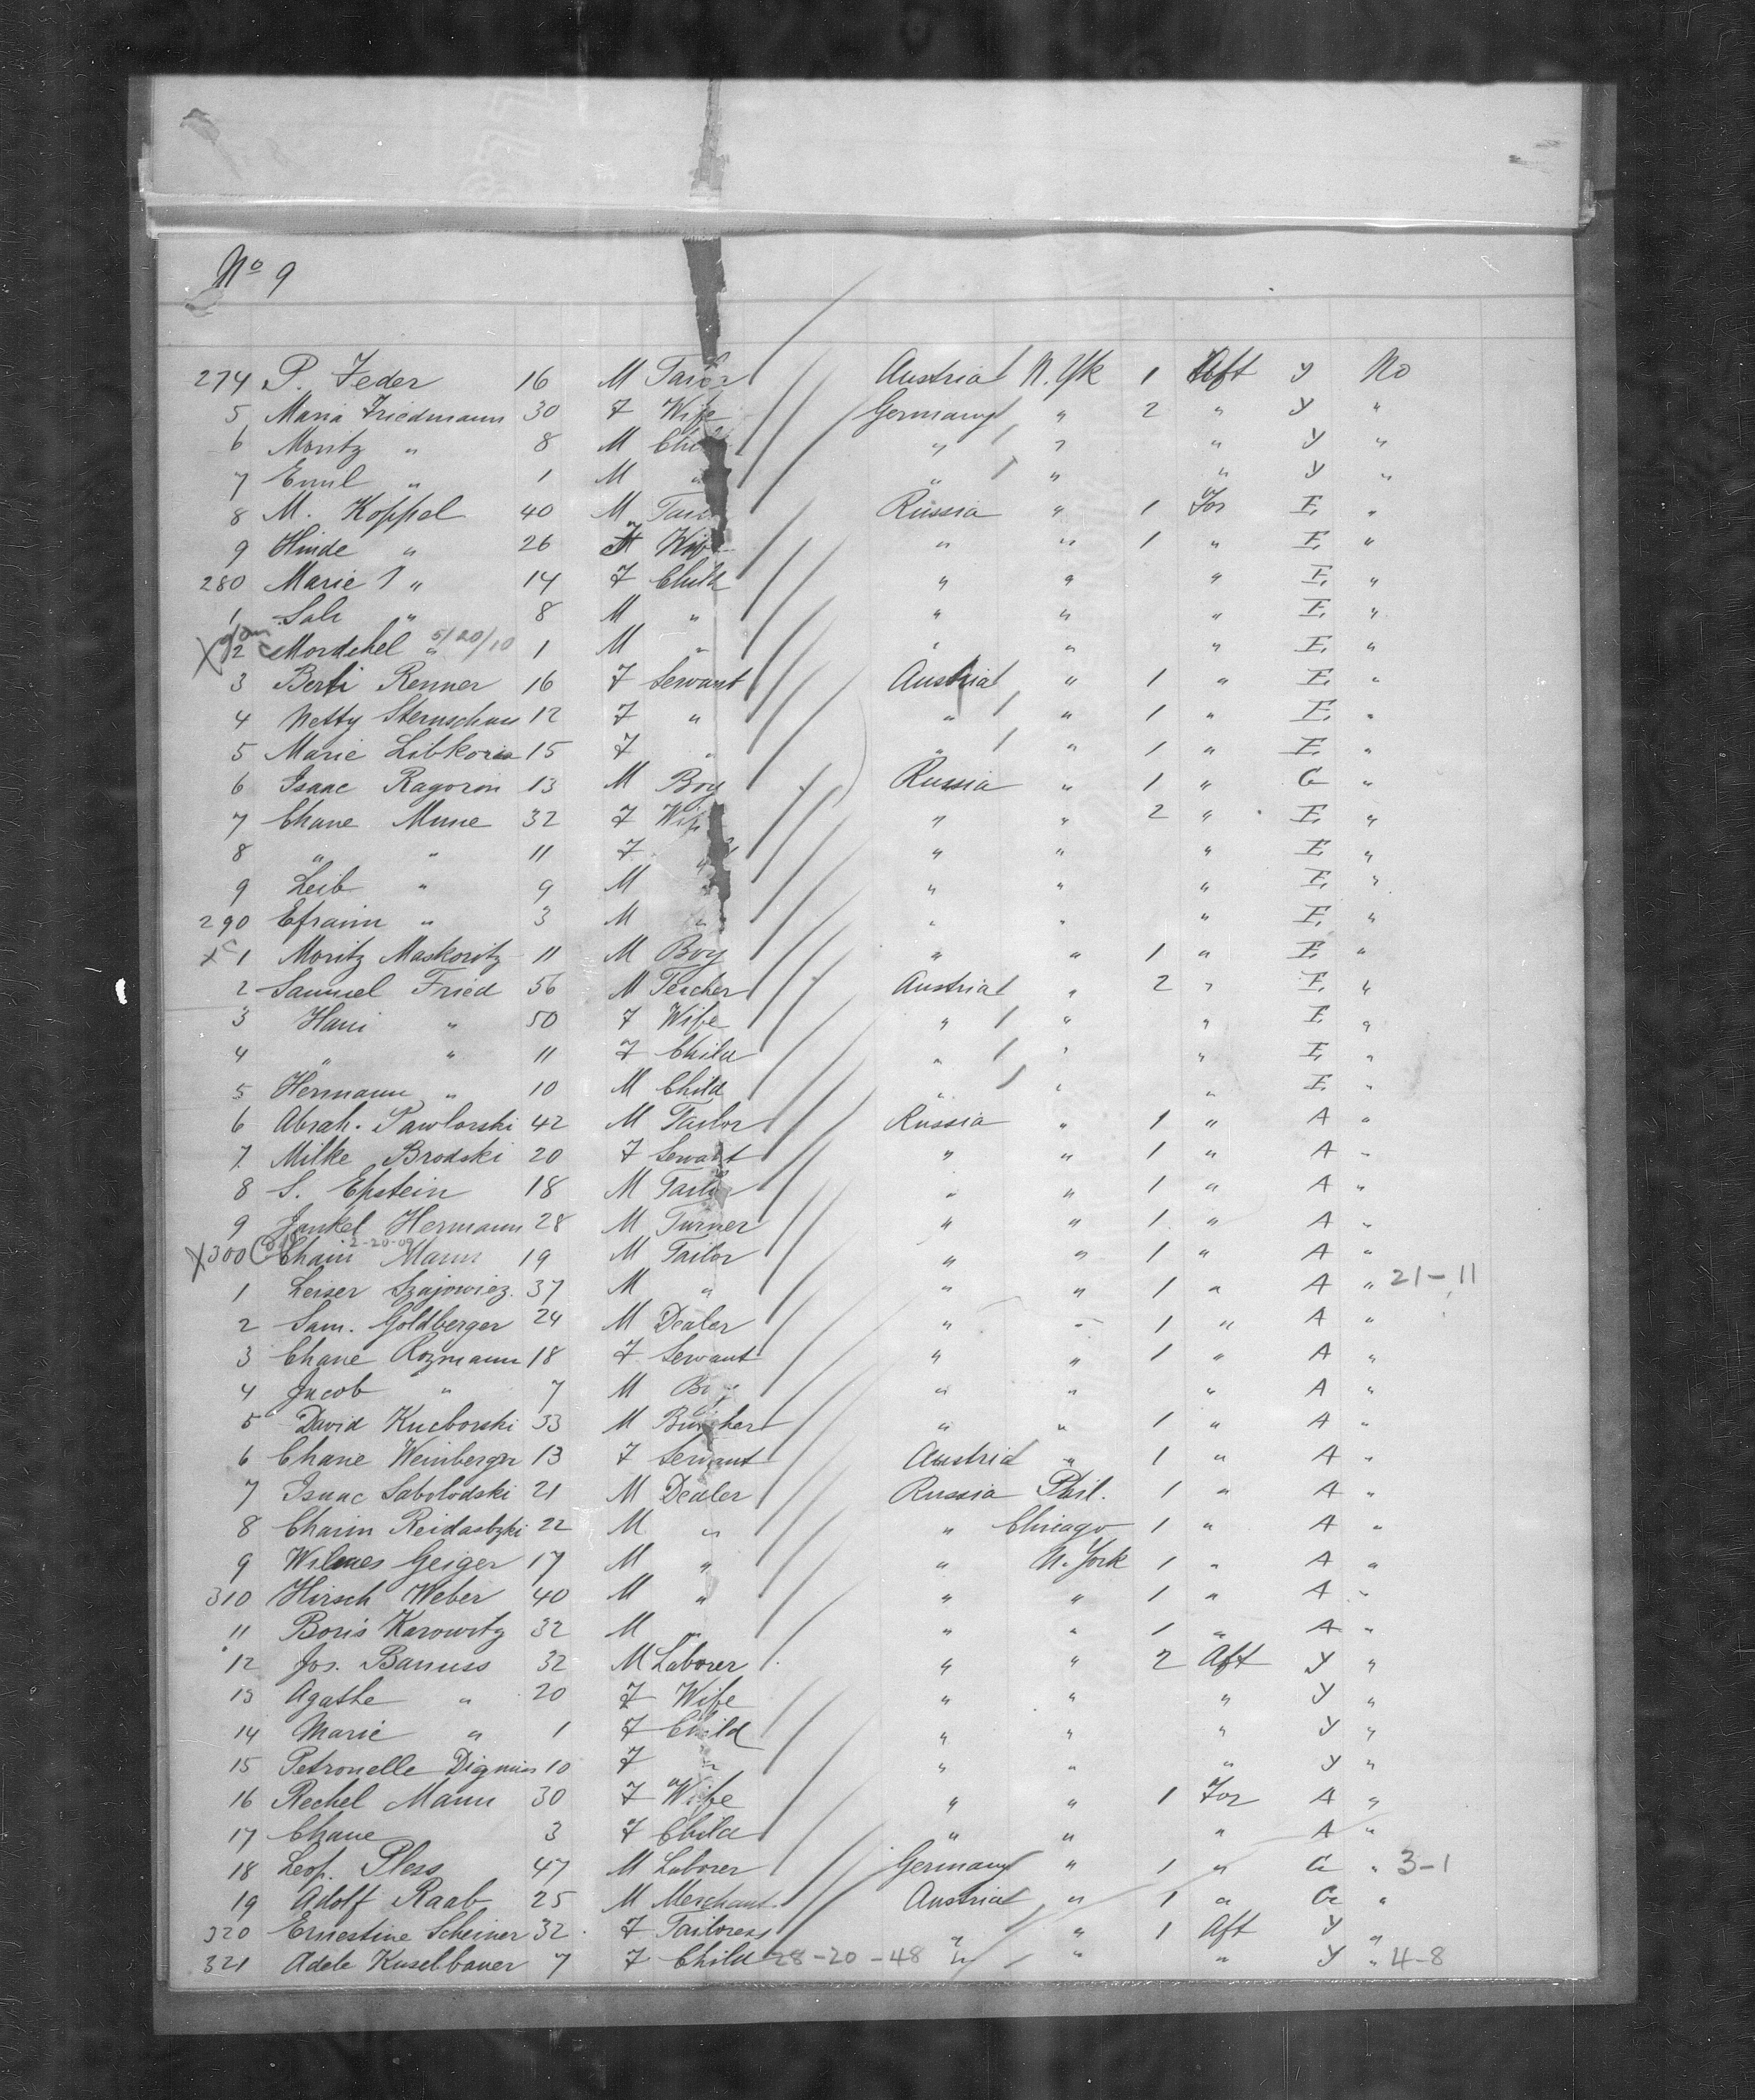 No 9
274 P. Feder 16 M Tailor Austria N. Yk 1 Aft Y No
5 Maria Friedmann 30 F Wife Germany " 2 " Y "
6 Moritz " 8 M Child " " " Y "
7 Emil " 1 M " " " " Y "
8 M. Koppel 40 M Tailor Russia " 1 For E "
9 Hinde " 26 F Wife " " 1 " E "
280 Marie " 14 F Child " " " E "
1 Sali " 8 M " " " " E "
X 2 Mordchel " 5/20/10 1 M " " " " E "
3 Berti Renner 16 F Servant Austria " 1 " E "
4 Netty Sternschuss 12 F " " " 1 " E "
5 Marie 15 F " " " 1 " E "
6 Isaac Ragorin 13 M Boy Russia " 1 " G "
7 Chane Mune 32 F Wife " " 2 " E "
8 " " 11 F " " " " E "
9 Leib " 9 M " " " " E "
290 Efraim " 3 M " " " " E "
X c 1 Moritz Maskovitz 11 M Boy " " 1 " E "
2 Samuel Fried 56 M Teacher Austria " 2 " E "
3 Hani " 50 F Wife " " " E "
4 " " 11 F Child " " " E "
5 Hermann " 10 M Child " " " E "
6 Abrah. Pawlorski 42 M Tailor Russia " 1 " A "
7 Milke Brodski 20 F Servant " " 1 " A "
8 S. Epstein 18 M Tailor " " 1 " A "
9 Jankel Hermann 28 M Turner " " 1 " A "
X 300 Chaim Mann 2-20-09 19 M Tailor " " 1 " A "
1 Leiser Szajowicz. 37 M " " " 1 " A " 21-11
2 Sam. Goldberger 24 M Dealer " " 1 " A "
3 Chane Rozmann 18 F Servant " " 1 " A "
4 Jacob " 7 M Boy " " " A "
5 David Kucborski 33 M Butcher " " 1 " A "
6 Chane Weinberger 13 F Servant Austria " 1 " A "
7 Isaac Sabolodski 21 M Dealer Russia Phil. 1 " A "
8 Chaim 22 M " " Chicago 1 " A "
9 Geiger 17 M " " N. York 1 " A "
310 Hirsch Weber 40 M " " " 1 " A "
11 Boris Karowitz 32 M " " " 1 " A "
12 Jos. Banuss 32 M Laborer " " 2 Aft Y "
13 Agathe " 20 F Wife " " " Y "
14 Marie " 1 F Child " " " Y "
15 Petronelle 10 F " " " " Y "
16 Rechel Mann 30 F Wife " " 1 For A "
17 Chane 3 F Child " " " A "
18 Leop. Pless 47 M Laborer Germany " 1 " G " 3-1
19 Adolf Raab 25 M Merchant Austria " 1 " G "
320 Ernestine Scheiner 32 F Tailoress " " 1 Aft Y "
321 Adele Kuselbauer 7 F Child 28-20-48 " " " Y " 4-8